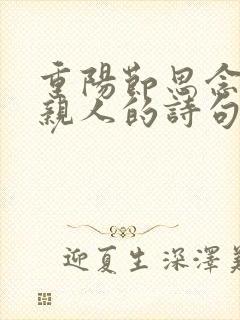 重陽節思念
親人的詩句
迎夏生深澤美